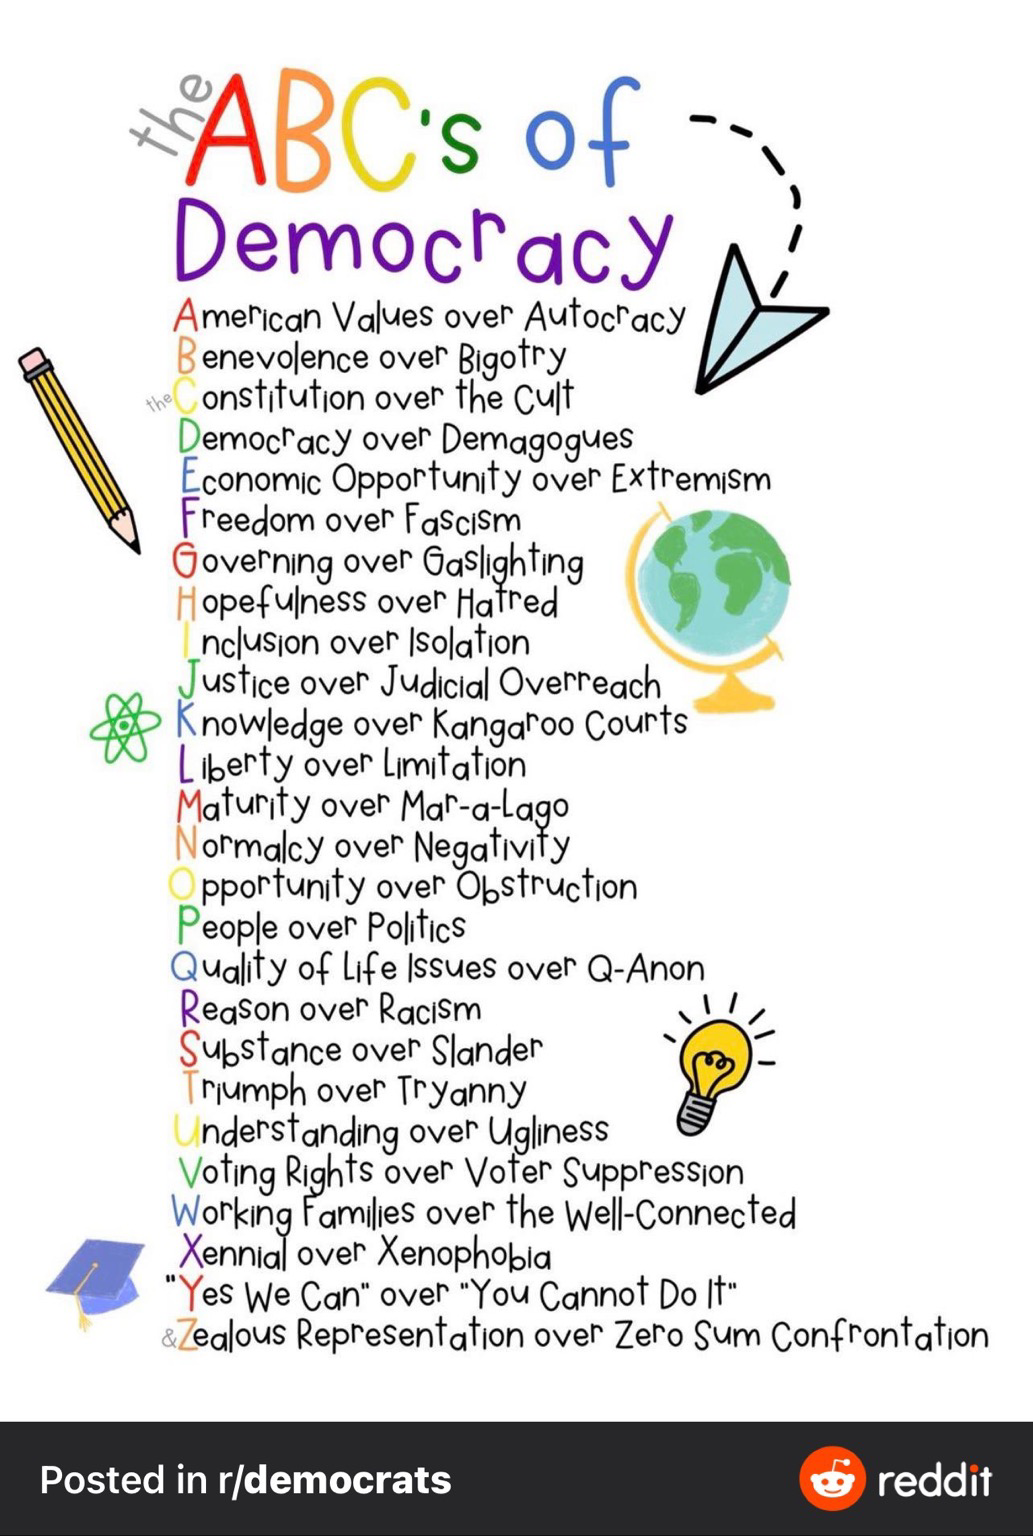 the ABC's of
Democracy
American Values over Autocracy
Benevolence over Bigotry
the Constitution over the Cult
Democracy over Demagogues
Economic Opportunity over Extremism
Freedom over Fascism
Governing over Gaslighting
Hopefulness over Hatred
Inclusion over Isolation
Justice over Judicial Overreach
Knowledge over Kangaroo Courts
Liberty over Limitation
Maturity over Mar-a-Lago
Normalcy over Negativity
Opportunity over Obstruction
People over Politics
Quality of Life Issues over Q-Anon
Reason over Racism
Substance over Slander
Triumph over Tryanny
Understanding over Ugliness
Voting Rights over Voter Suppression
Working Families over the Well-Connected
Xennial over Xenophobia
"Yes We Can" over "You Cannot Do It"
& Zealous Representation over Zero Sum Confrontation
Posted in r/democrats
reddit